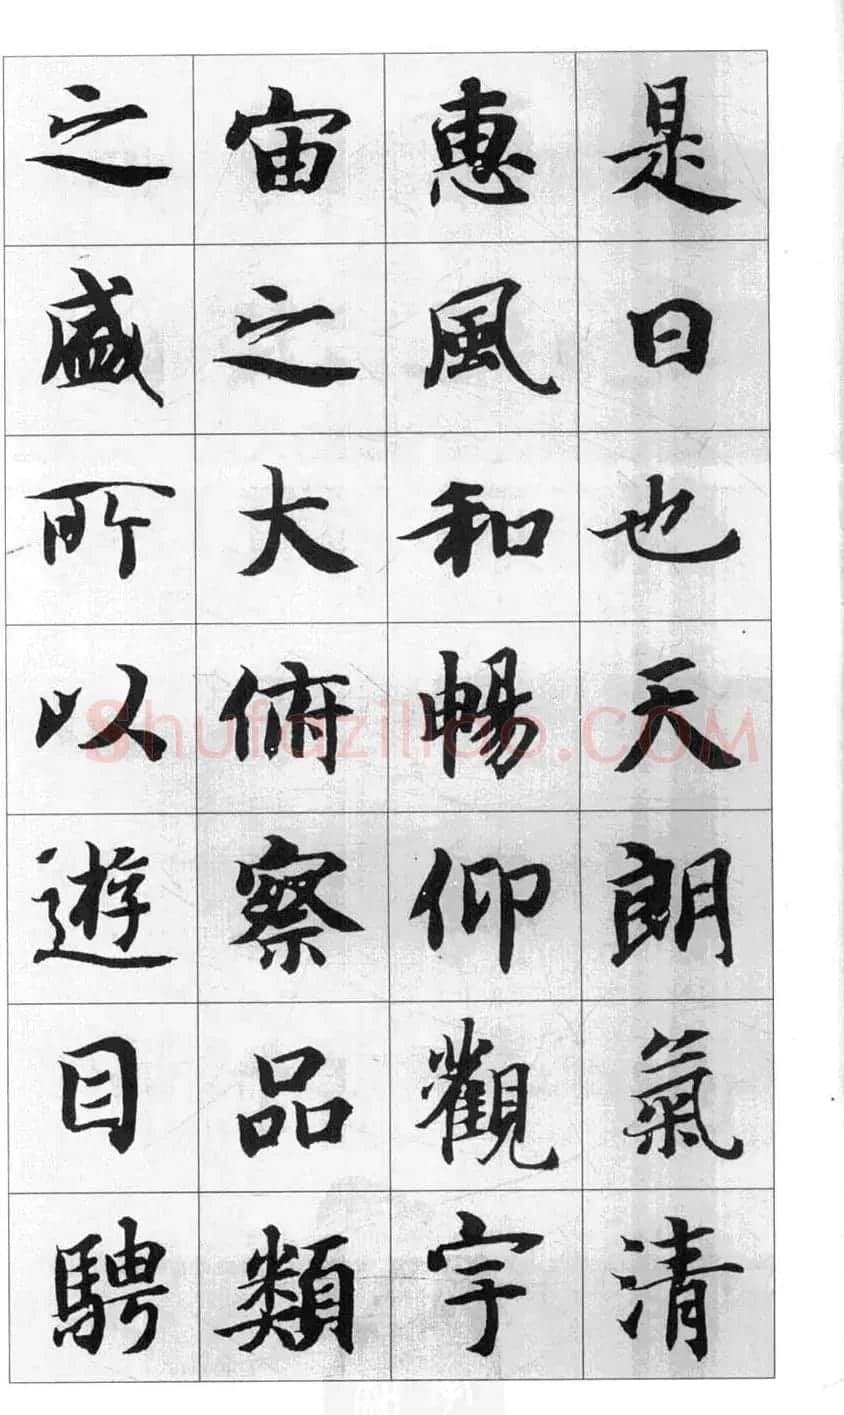 是日也天朗氣清
惠風和暢仰觀宇
宙之大俯察品類
之盛所以遊目騁
Shufaziliao.COM